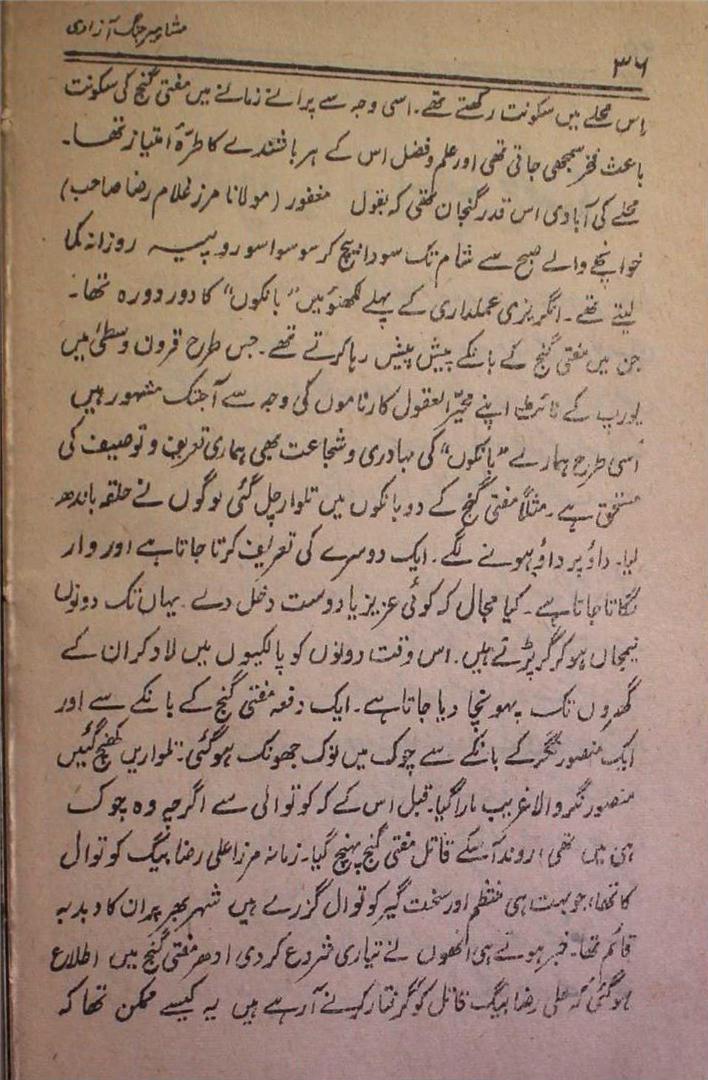 مشاہیر جنگ آزادی
۳۶
اس محلے میں سکونت رکھتے تھے۔ اسی وجہ سے پرانے زمانے میں مفتی گنج کی سکونت
باعث فخر سمجھی جاتی تھی اور علم و فضل اس کے ہر باشندے کا طرۂ امتیاز تھا۔
محلے کی آبادی اس قدر گنجان تھی کہ بقول مغفور (مولانا مرزا غلام رضا صاحب)
خوانچے والے صبح سے شام تک سودا بیچ کر سو سوا سو روپیہ روزانہ کما
لیتے تھے۔ انگریزی عملداری کے پہلے لکھنؤ میں "بانکوں" کا دور دورہ تھا۔
جن میں مفتی گنج کے بانکے پیش پیش رہا کرتے تھے۔ جس طرح قرون وسطیٰ میں
یورپ کے نائٹ اپنے محیر العقول کارناموں کی وجہ سے آجتک مشہور ہیں
اسی طرح ہمارے "بانکوں" کی بہادری و شجاعت بھی ہماری تعریف و توصیف کی
مستحق ہے۔ مثلاً مفتی گنج کے دو بانکوں میں تلوار چل گئی لوگوں نے حلقہ باندھ
لیا۔ داؤ پر داؤ ہونے لگے۔ ایک دوسرے کی تعریف کرتا جاتا ہے اور وار
لگاتا جاتا ہے۔ کیا مجال کہ کوئی عزیز یا دوست دخل دے۔ یہاں تک دونوں
نیمجاں ہو کر گر پڑتے ہیں۔ اس وقت دونوں کو پالکیوں میں لاد کر ان کے
گھروں تک پہونچا دیا جاتا ہے۔ ایک دفعہ مفتی گنج کے بانکے سے اور
ایک منصور نگر کے بانکے سے چوک میں نوک جھونک ہو گئی۔ تلواریں کھنچ گئیں
منصور نگر والا غریب مارا گیا۔ قبل اس کے کہ کوتوالی سے اگرچہ وہ چوک
ہی میں تھی، روند آسکے قاتل مفتی گنج پہنچ گیا۔ زمانہ مرزا علی رضا بیگ کوتوال
کا تھا، جو بہت ہی منتظم اور سخت گیر کوتوال گزرے ہیں شہر بھر پر ان کا دبدبہ
قائم تھا۔ خبر ہوتے ہی انھوں نے تیاری شروع کر دی ادھر مفتی گنج میں اطلاع
ہو گئی کہ علی رضا بیگ قاتل کو گرفتار کرنے آرہے ہیں یہ کیسے ممکن تھا کہ